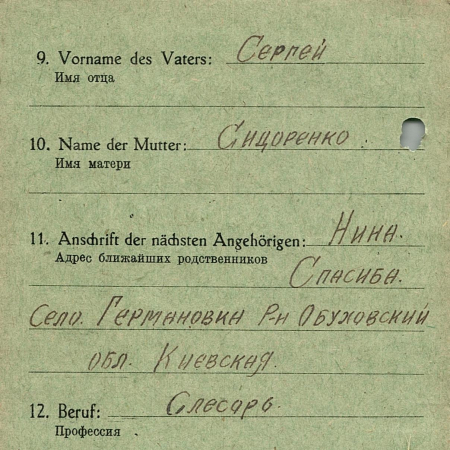 9. Vorname des Vaters: Сергей
Имя отца
10. Name der Mutter: Сидоренко.
Имя матери
11. Anschrift der nächsten Angehörigen: Нина.
Адрес ближайших родственников
Спасиба.
Село. Германовка Р-н Обуховский
обл. Киевская.
12. Beruf: Слесарь.
Профессия